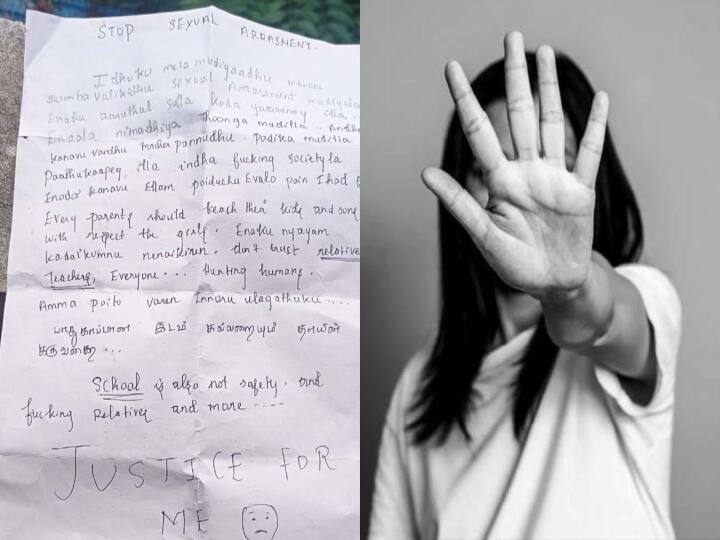 STOP SEXUAL ARRASMENT.
Idhuku mela mudiyaadhu
romba valikidhu sexual Arrasment mudiyala
Enaku aaruthal solla kuda yarumey illa
Ennala nimadhiya thoonga mudilla .. Andha
Kanavu vandhu torder pannudhu. padika mudilla
Paathukaapey illa indha fucking society la
Enoda Kanavu Ellam poiduchu Evalo pain I had
Every parents should teach their kids and sons
with respect the girls. Enaku nyayam
kadaikumnu nenaikiren. don't trust relative
Teachers, Everyone... Hunting humans.
Amma poitu varen Innoru ulagathuku....
பாதுகாப்பான இடம் கல்லறையும் தாயின்
கருவறை...
School is also not safety. and
fucking Relatives and more ....
JUSTICE FOR
ME